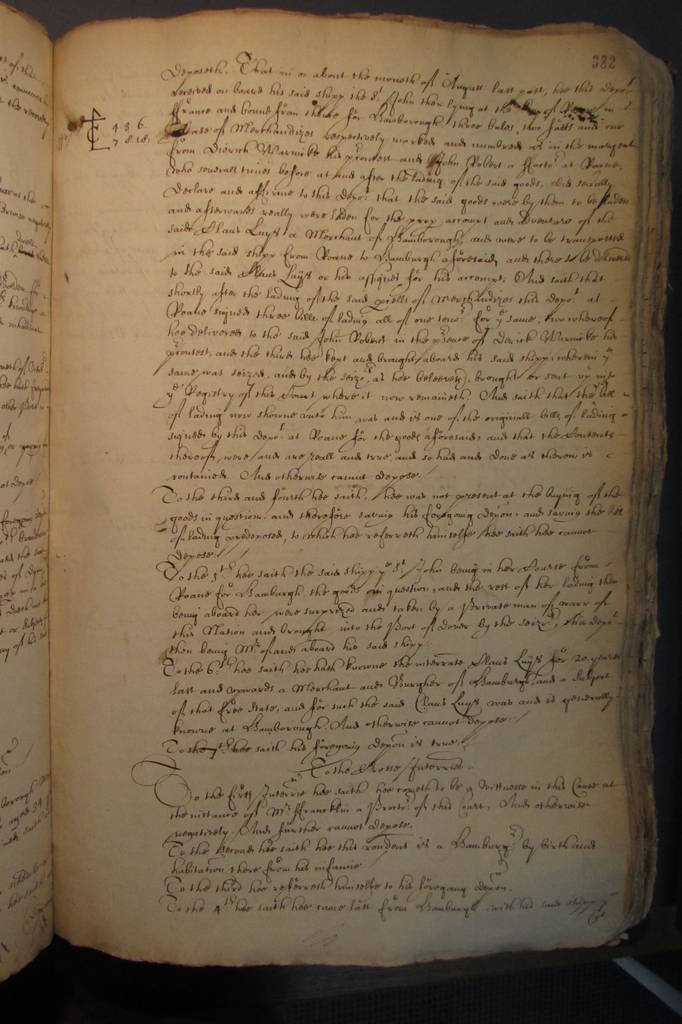 382
deposeth. That in or about the moneth of August last past, hee this depo:t
received on board his said shipp the S:t John then lying at the of Roane in
ffrance and bound from thence for Hamborough, three bales, two fatts and one
4 5 6
7 8 18.
Case of Merchandizes respectively marked and numbred as in the margent
from Dierick Warnike his promest and John Robert a ffactor at Roane,
who severall times before at and after the lading of the said goods, did severally
declare and affirme to this depo:t that the said goods were by them to be laden
and afterwards really were laden for the propp account and adventure of the
said Claus Luyss a Merchant of Hamborough, and were to be transported
in the said shipp from Roane to Hamburgh aforesaid, and there to be delivered
to the said Claus Luyss or his assignes for his accompt. And saith that
shortly after the lading of the said goods of Merchandizes this depo:t at
Roane signed three bills of lading all of one teno:r for y:e same, two whereof
hee delivered to the said John Robert in the p:rsence of Derick Warnike his
promest, and the third hee kept and brought aboard his said shipp, wherein y:e
same was seized, and by the seizo:rs as hee beleeveth, brought or sent up into
y:e Registry of this Court, where it now remaineth. And saith that the bill
of lading now showne unto him was and is one of the originall bills of lading
signed by this depo:t at Roane for the goods aforesaid, and that the Contents
thereof were and are reall and true, and so had and done as therein is
contained. And otherwise cannot depose.
To the third and fourth hee saith, hee was not present at the buying of the
goods in question. and therefore saving his foregoing depon: and saving the bill
of lading predeposed, to which hee referreth himselfe, hee saith hee cannot
depose.
To the 5:th hee saith the said shipp y:e S:t John being in her Course from
Roane for Hamburgh, the goods in question, and the rest of her lading then
being aboard her, were surprized and taken by a Private man of warr of
this Nation and brought into the Port of Dover by the seizo:rs, this depo:t
then being M:r of and aboard his said shipp.
To the 6:th hee saith hee hath knowne the interrate Claus Luyss for 20 yeares
last and upwards a Merchant and Burgher of Hamburgh and a subject
of that free State, and for such the said Claus Luyss was and is generally
knowne at Hamborough. And otherwise cannot depose.
To the 7:th hee saith his foregoing depon is true.
To the Crosse Interries.
To the first Interrie hee saith hee cometh to be a wittnesse in this Cause at
the instance of M:r ffrancklin a Procto:r of this Court, And otherwise
negatively. And further cannot depose.
To the second hee saith hee this rendent is a Hamburg:r by birth and
habitation there from his infancie.
To the third hee referreth himselfe to his foregoing depon.
To the 4:th hee saith hee came last from Hamburgh with his said shipp y:e